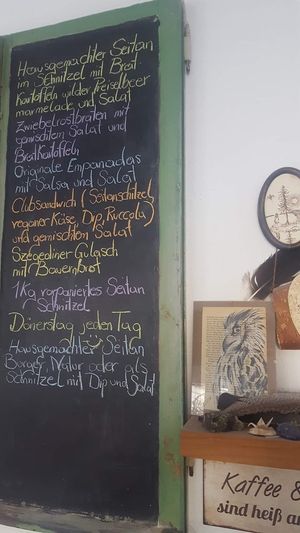 Hausgemachter Seitan
im Schnitzel mit Brat
Kartoffeln wilder Preiselbeer
marmelade und Salat
Zwiebelrostbraten mit
gemischtem Salat und
BratKartoffeln
Originale Empanadas
mit Salsa und Salat
Clubsandwich (Seitanschitzel
veganer Käse, Dip, Ruccola)
und gemischtem Salat
Szegediner Gulasch
mit BauernBrot
1Kg vorpaniertes Seitan
Schnitzel
Dönerstag jeden Tag
Hausgemachter Seitan
Burger, Natur oder als
Schnitzel mit Dip und Salat
Kaffee &
sind heiß